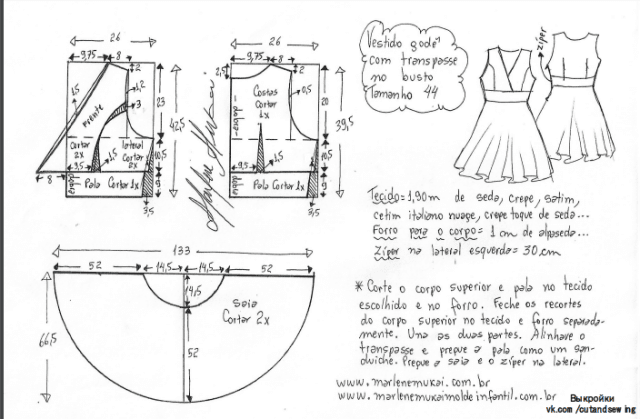 26
9,75 8
2
1,2
3
15
2x
Frente
23
42,5
cortar
2x
lateral
cortar
2x
9,5
1,5
10,5
dobra
Pala Cortar 1x
9
8
3,5
26
9,75 8
2,5
2
Costas
Cortar
1x
0,5
20
39,5
dobra
9,5
1,5
10,5
dobra
Pala Cortar 1x
9
3,5
Vestido godê
com transpasse
no busto
Tamanho 44
zíper
Tecido=1,90m de seda, crepe, satim,
cetim italiano nuage, crepe toque de seda...
Forro para o corpo= 1 cm de alpaseda...
Zíper na lateral esquerda= 30 cm
133
52 14,5 14,5 52
14,5
Saia
Cortar 2x
66,5
52
* Corte o corpo superior e pala no tecido
escolhido e no forro. Feche os recortes
do corpo superior no tecido e forro separada-
mente. Una as duas partes. Alinhave o
transpasse e pregue a pala como um san-
duíche. Pregue a saia e o zíper na lateral.
www.marlenemukai.com.br
www.marlenemukaimoldeinfantil.com.br
Выкройки
vk.com/cutandsewing